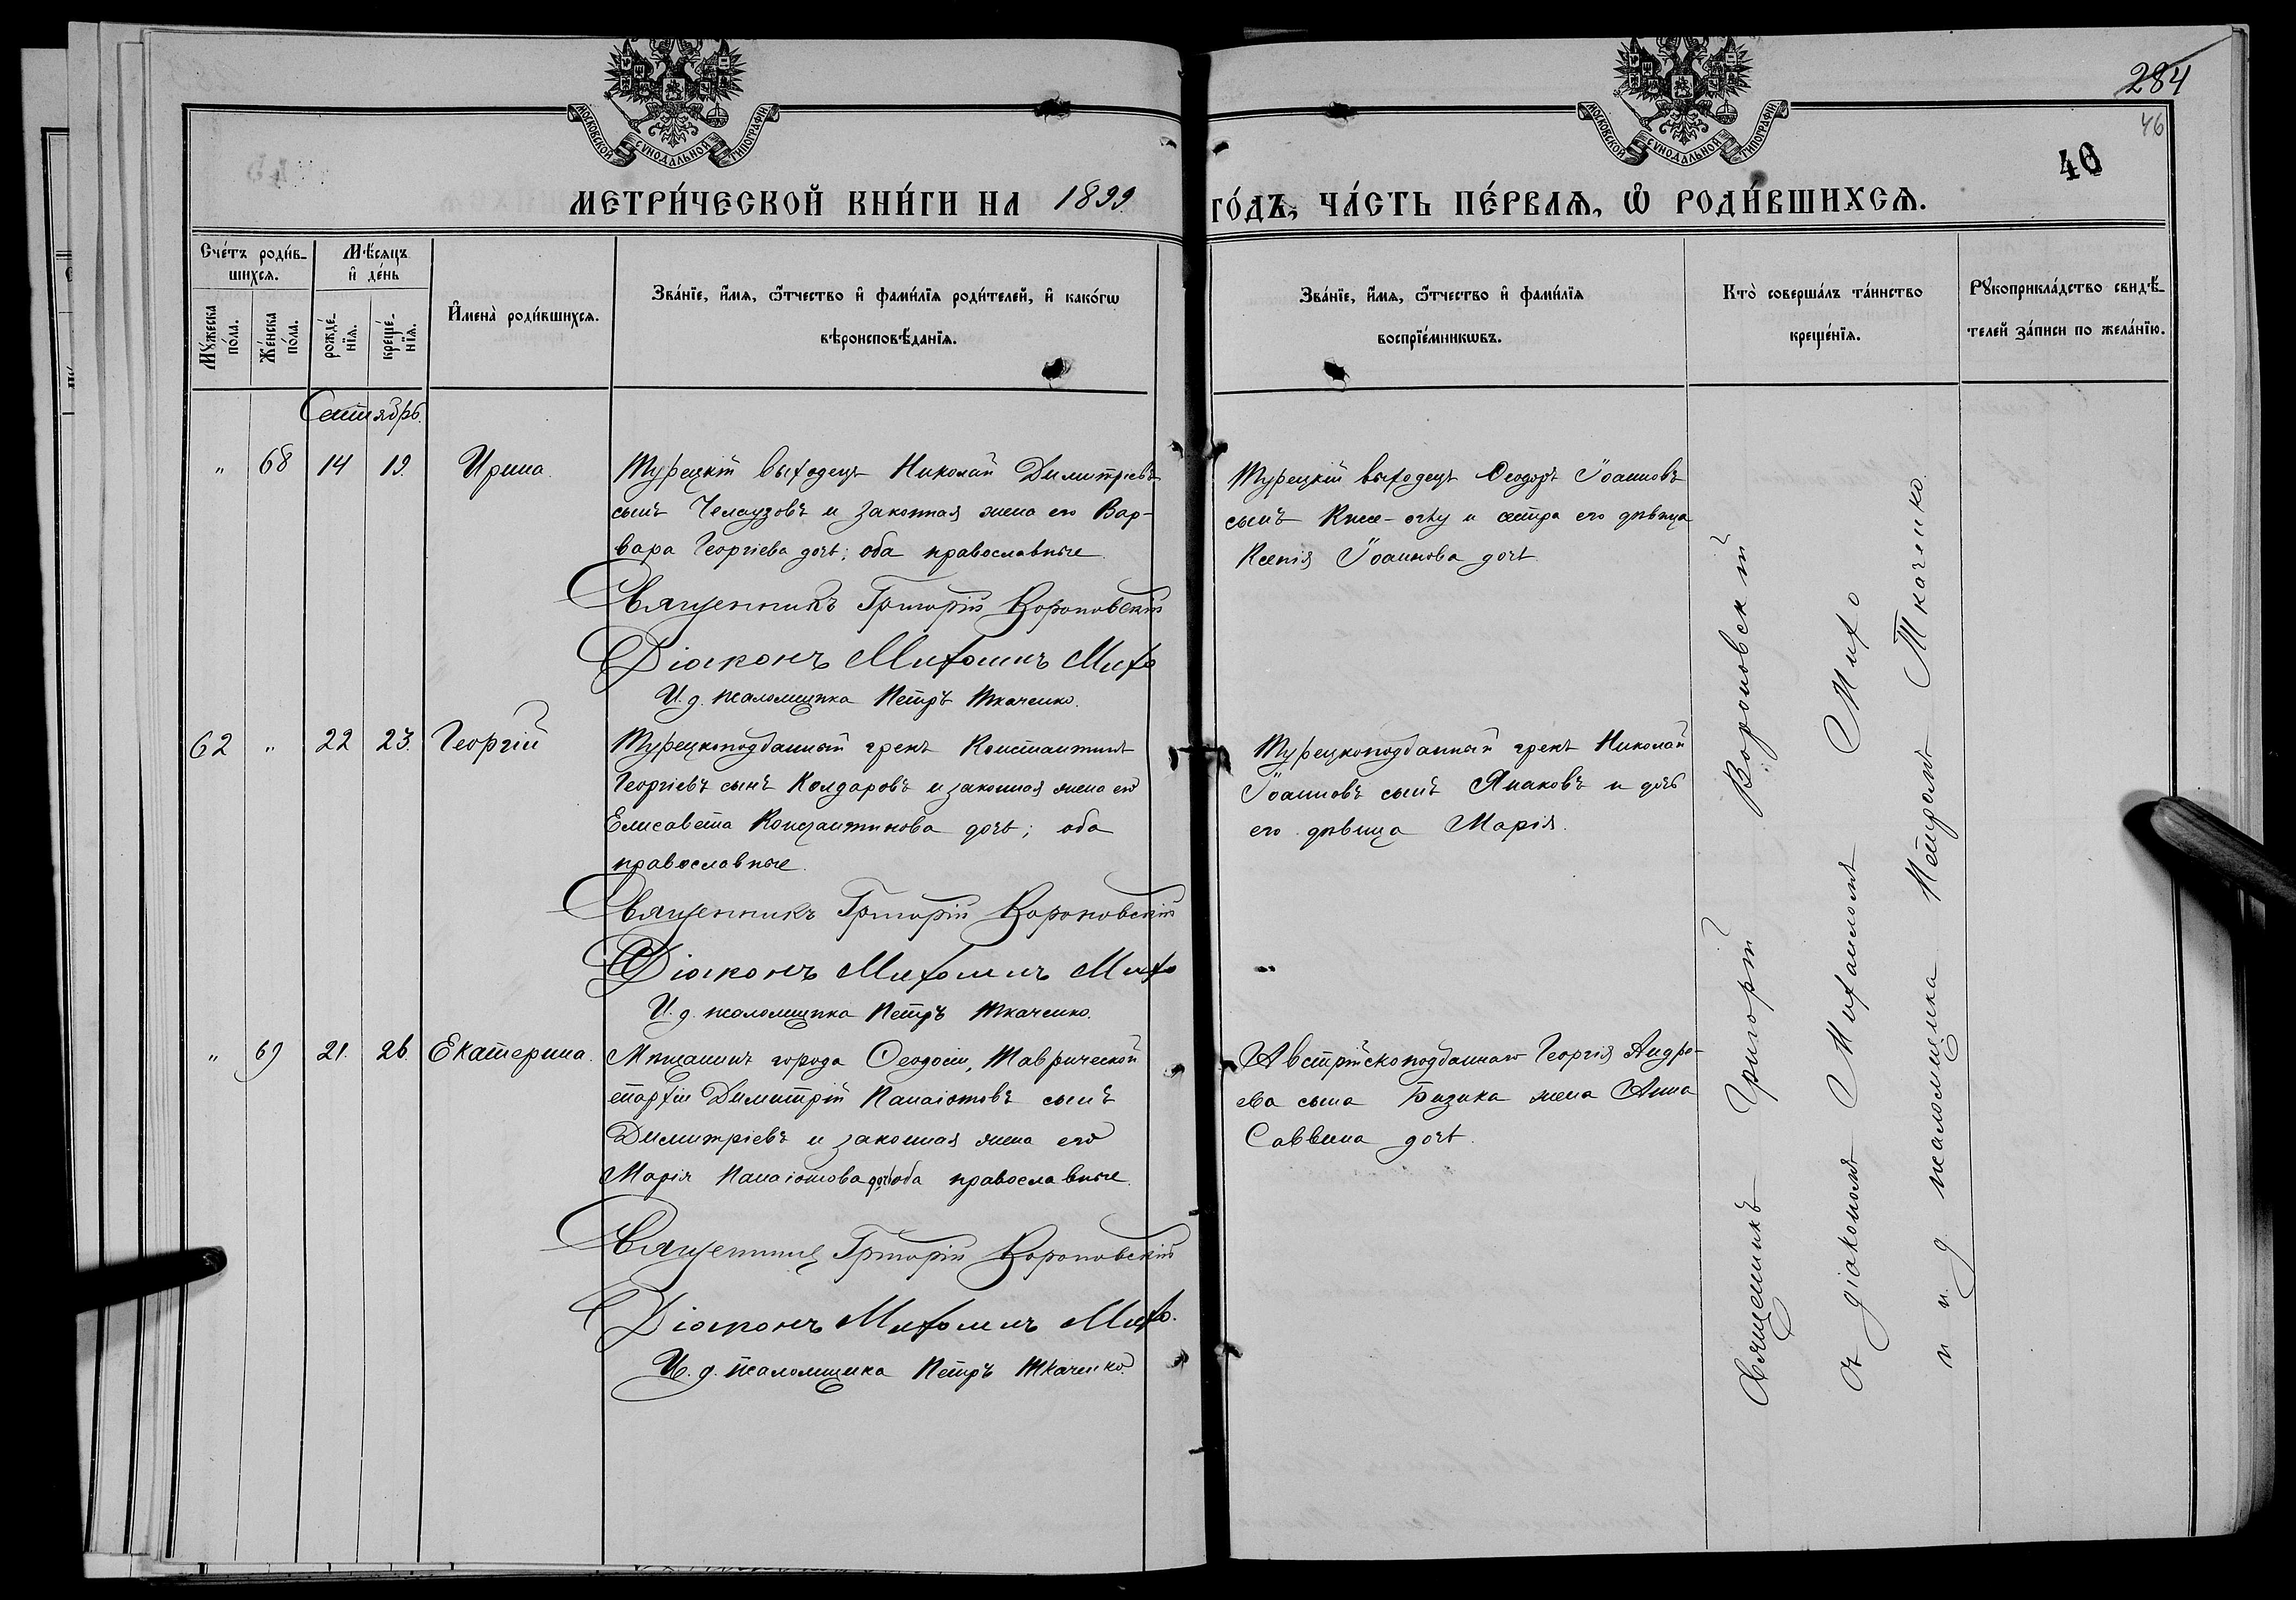 284
46
46
МОСКОВСКОЙ СУНОДАЛЬНОЙ ТИПОГРАФІИ
МОСКОВСКОЙ СУНОДАЛЬНОЙ ТИПОГРАФІИ
МЕТРИ́ЧЕСКОЙ КНИ́ГИ НА 1899. ГО́ДЪ, ЧА́СТЬ ПЕ́РВАѦ, Ѡ҆ РОДИ́ВШИХСѦ.
Сче́тъ роди́в-
шихсѧ.
Мꙋ́жеска по́ла.
Же́нска по́ла.
Мѣ́сѧцъ
и҆ де́нь
рожде́-нїѧ.
креще́-нїѧ.
И҆мена̀ роди́вшихсѧ.
Зва́нїе, и҆́мѧ, ѻ҆́тчество и҆ фами́лїѧ роди́телей, и҆ како́гѡ
вѣроисповѣ́данїѧ.
Зва́нїе, и҆́мѧ, ѻ҆́тчество и҆ фами́лїѧ
воспрїе́мникѡвъ.
Кто̀ соверша́лъ та́инство
креще́нїѧ.
Рꙋкоприкла́дство свидѣ́-
телей за́писи по жела́нїю.
Сентябрь.
" 68 14 19. Ирина.
Турецкій выходецъ Николай Димитріевъ
сынъ Челаузовъ и законная жена его Вар-
вара Георгіева дочь; оба православные.
Священникъ Григорій Вороновскій
Діаконъ Михаилъ Михо
И. д. псаломщика Петръ Ткаченко.
Турецкій выходецъ Ѳеодоръ Іоанновъ
сынъ Кисе-оглу и сестра его дѣвица
Ксенія Іоаннова дочь.
62 " 22 23. Георгій
Турецкоподданный грекъ Константинъ
Георгіевъ сынъ Колдаровъ и законная жена его
Елисавета Константинова дочь; оба
православные.
Священникъ Григорій Вороновскій
Діаконъ Михаилъ Михо
И. д. псаломщика Петръ Ткаченко.
Турецкоподданный грекъ Николай
Іоанновъ сынъ Янаковъ и дочь
его дѣвица Марія.
" 69 21. 26. Екатерина.
Мѣщанинъ города Ѳеодосіи, Таврической
епархіи Димитрій Панаіотовъ сынъ
Димитріевъ и законная жена его
Марія Панаіотова дочь оба православные.
Священникъ Григорій Вороновскій
Діаконъ Михаилъ Михо.
И. д. псаломщика Петръ Ткаченко.
Австрійскоподданнаго Георгія Андре-
ева сына Бизика жена Анна
Саввина дочь.
Священникъ Григорій Вороновскій
съ діакономъ Михаиломъ Михо
и и. д. псаломщика Петромъ Ткаченко.